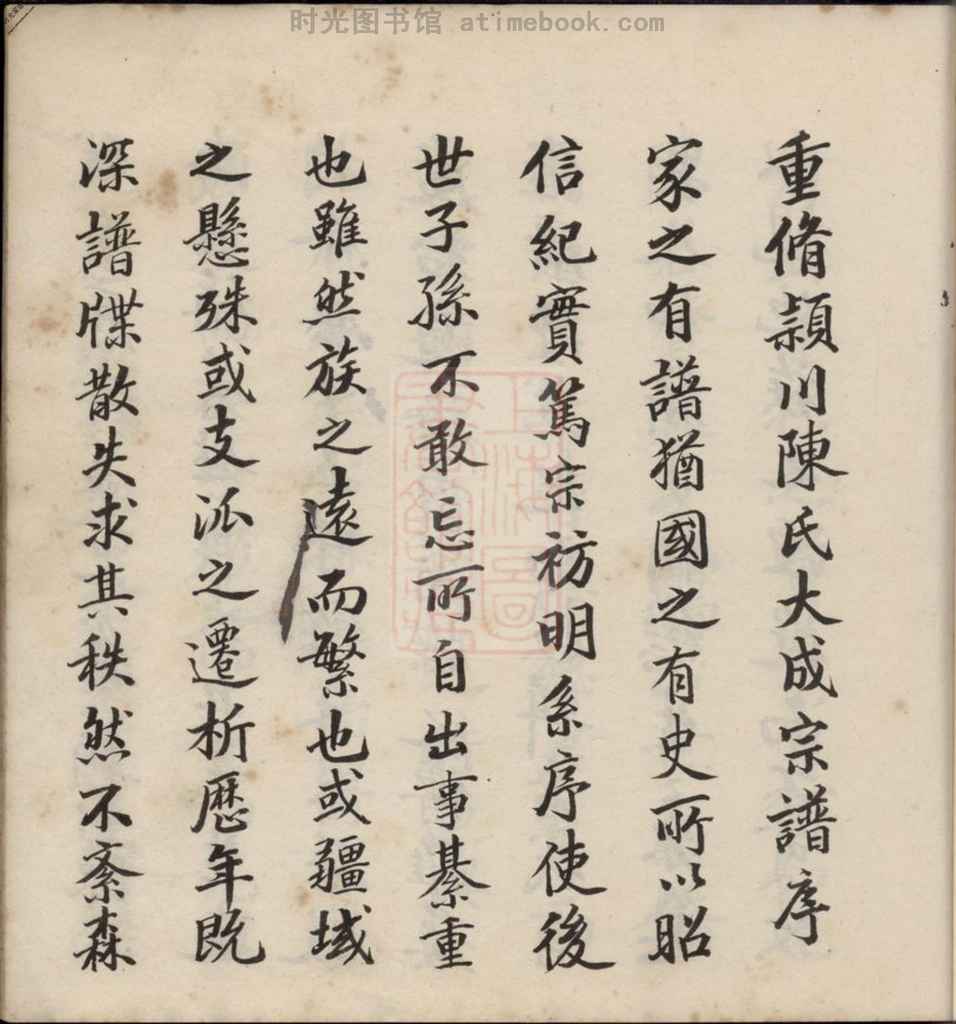 时光图书馆 atimebook.com
重脩潁川陳氏大成宗譜序
家之有譜猶國之有史所以昭
信紀實篤宗祊明系序使後
世子孫不敢忘所自出事綦重
也雖然族之遠而繁也或疆域
之懸殊或支派之遷析歷年既
深譜牒散失求其秩然不紊森